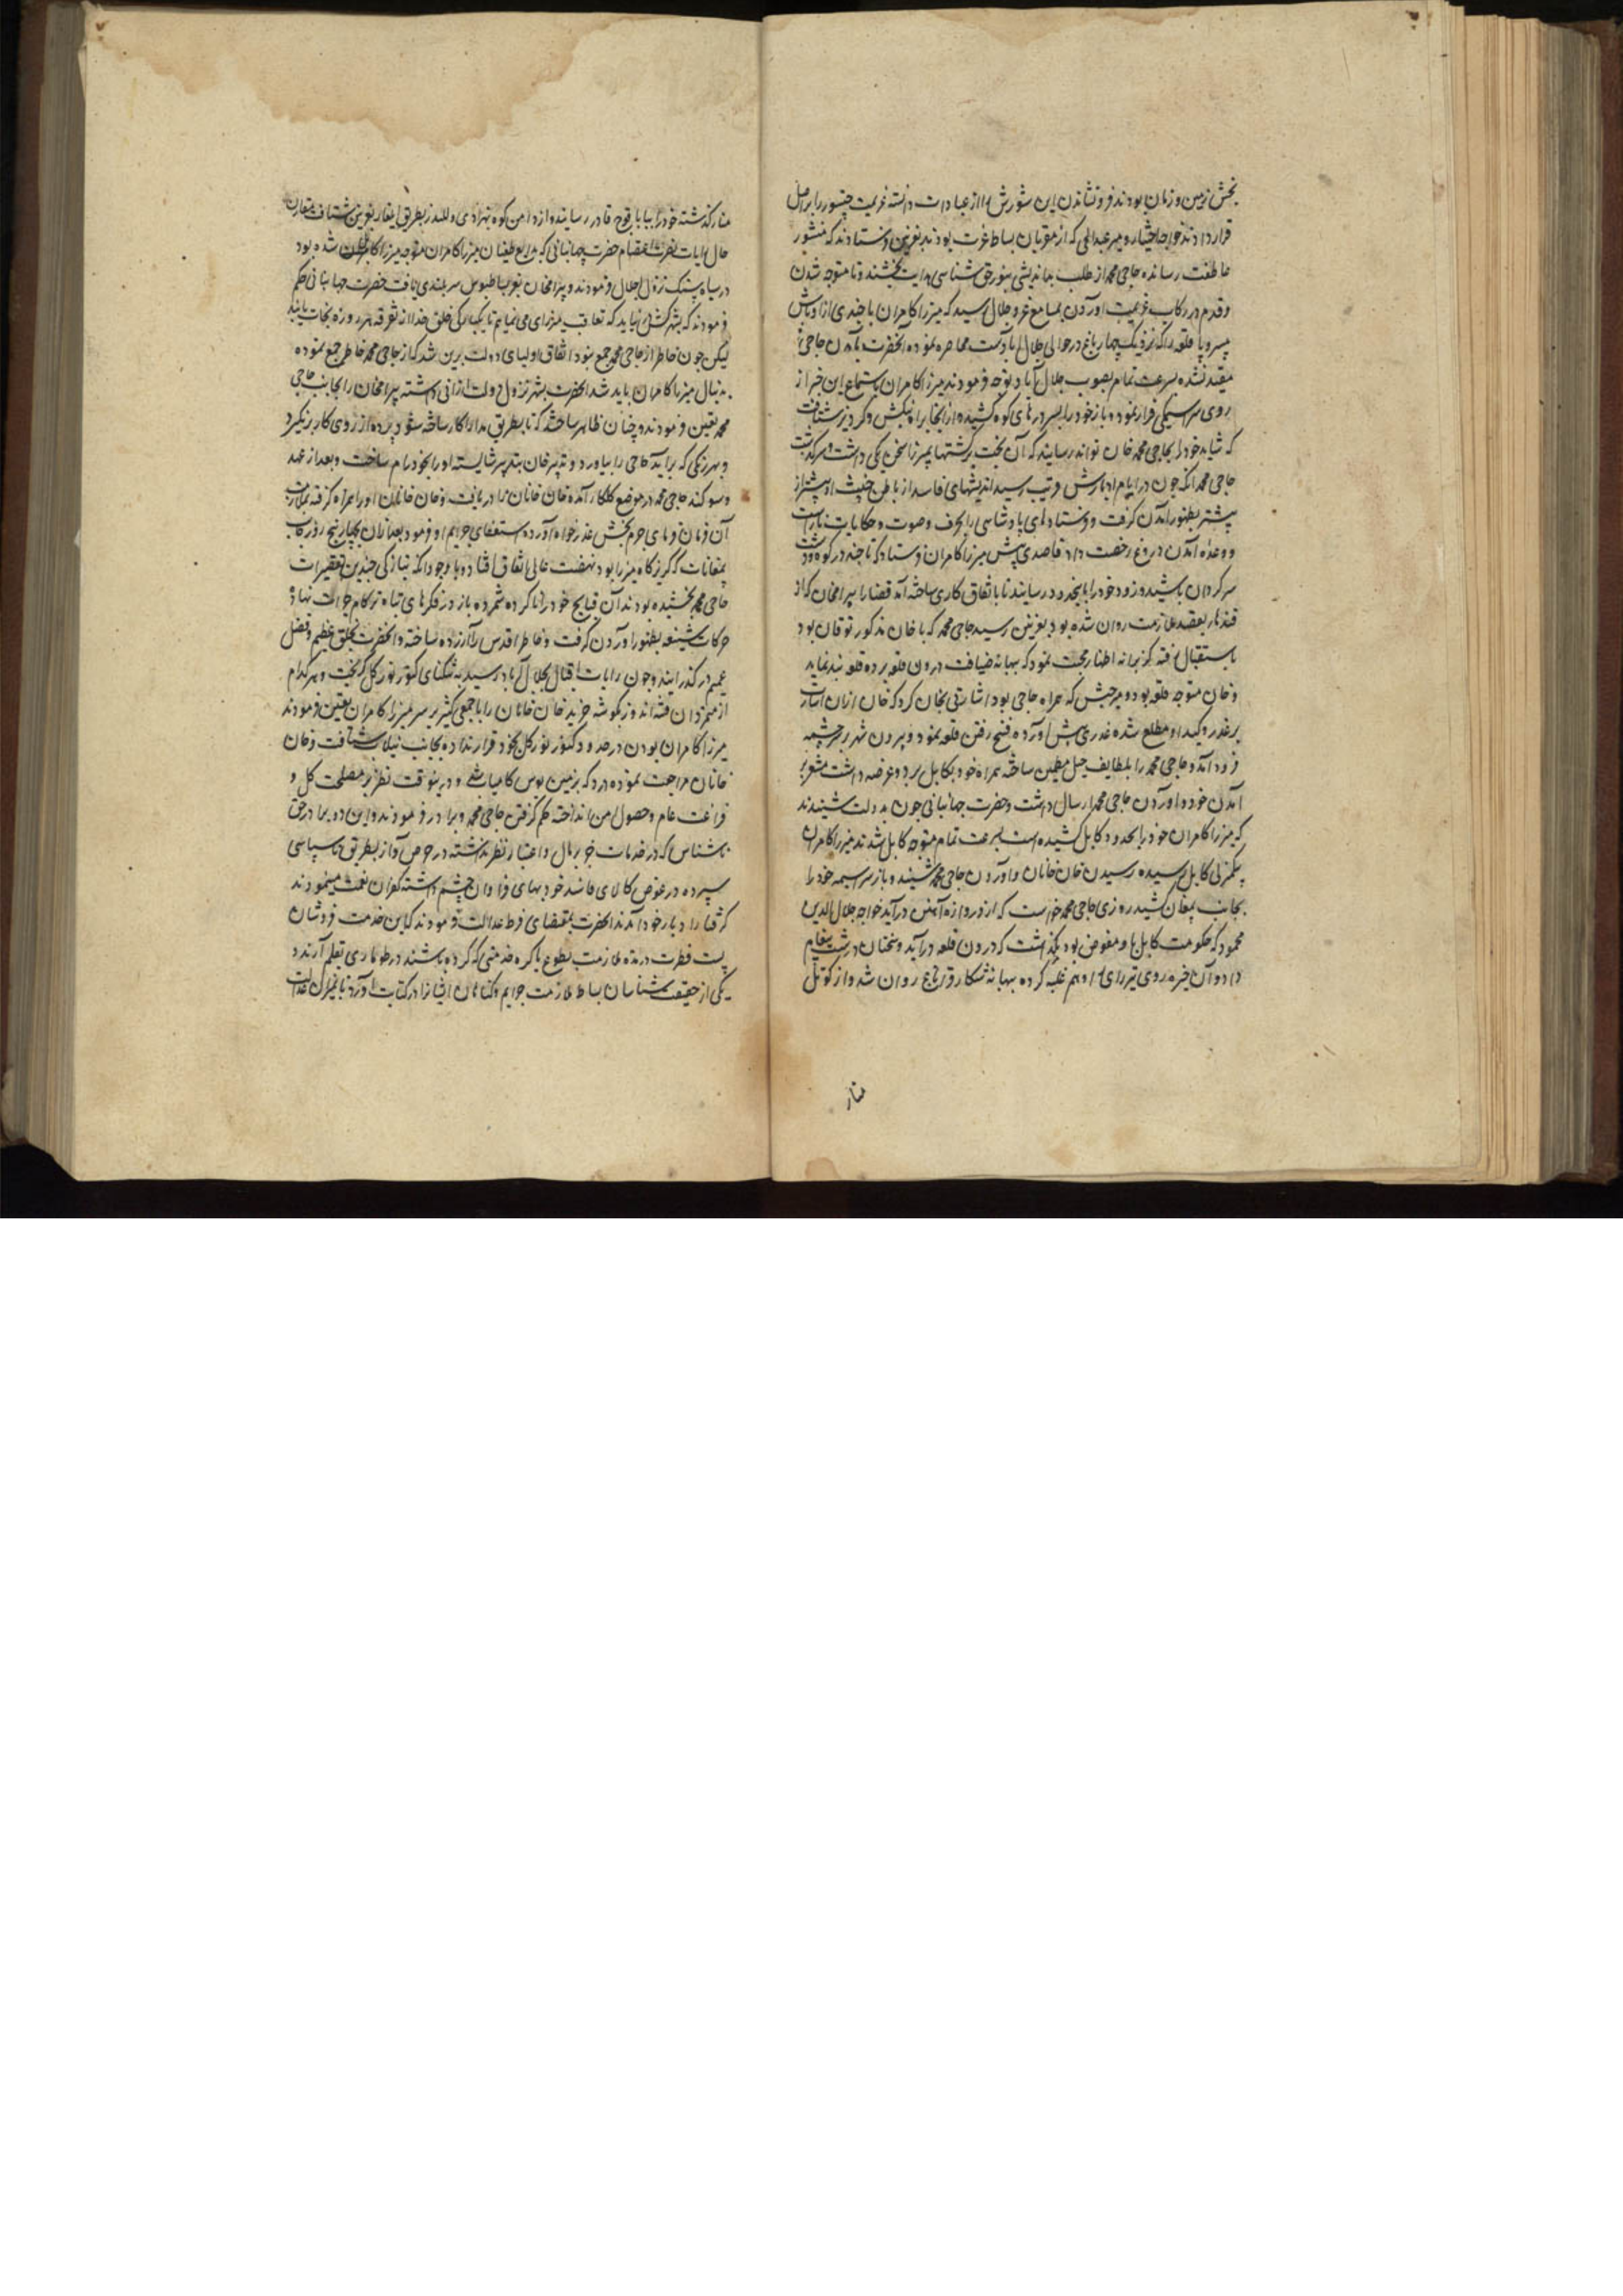 بخش زمین و زمان بودند فرونشاندن این شورش را از عبادات دانسته عزیمت
قرار دادند خواجه اختیار و میر عبدالحی که از مقربان بساط عزت بودند بغزنین فرستادند که منشور
عاطفت رسانده حاجی محمد از طلب بداندیشی بنور حق شناسی هدایت بخشند و تا متوجه شدن
و قدم در رکاب عزیمت آوردن بمسامع عز و جلال رسید که میرزا کامران با چندی از اوباش
بیسروپا قلعه را که نزدیک چهارباغ در حوالی جلال آبادست محاصره نموده آنحضرت بآمدن حاجی
مقید نشده بسرعت تمام بصوب جلال آباد توجه فرمودند میرزا کامران باستماع این خبر از
روی سراسیمگی فرار نموده و باز خود را بسر درهای کوه کشیده از آنجا براه بنگش و گردیز شتافت
که شاید خود را بحاجی محمد خان تواند رسانید که آن بخت برگشتها بمیرزا سخن یکی داشت
حاجی محمد انکه چون در ایام ادبارش قریب رسید اندیشهای فاسد از باطن خبیث او بیشتر از
پیشتر بظهور آمدن گرفت و فرستادهای پادشاهی را بحرف و صوت و حکایات ناراست
و وعده آمدن دروغ رخصت داد قاصدی پیش میرزا کامران فرستاد که تا چند در کوه و دشت
سرگردان باشید زود خود را باینحدود رسانید تا باتفاق کاری ساخته آید قضا را بیرامخان که از
قندهار بقصد ملازمت روان شده بود بغزنین رسید حاجی محمد که با خان مذکور توقان بود
باستقبال رفته کزبرانه اظهار محبت نمود که ببهانه ضیافت درون قلعه برده قلعه بند نماید
و خان متوجه قلعه بود و میر حبش که همراه حاجی بود اشارتی بخان کرد که خان از آن اشارت
بر غدر و کید او مطلع شده عذری پیش آورده فسخ رفتن قلعه نمود و بیرون شهر بر سرچشمه
فرود آمد و حاجی محمد را بلطایف حیل مطمئن ساخته همراه خود بکابل برد و عرضه داشت مشعر بر
آمدن خود و آوردن حاجی محمد ارسال داشت و حضرت جهانبانی چون بدولت شنیدند
که میرزا کامران خود را بحدود کابل کشیده است بسرعت تمام متوجه کابل شدند میرزا کامران
بیکمنزلی کابل رسیده رسیدن خان خانان و آوردن حاجی محمد شنید و باز سراسیمه خود را
بجانب لمغان کشید روزی حاجی محمد خواست که از دروازه آهنین درآید خواجه جلال الدین
محمود که حکومت کابل باو مفوض بود نگذاشت که درون قلعه درآید و سخنان درشت پیغام
داد و آن خیره روی تیره رای را وهم غلبه کرده ببهانه شکار قراباغ روان شد و از کوتل
منار
منار گذشته خود را ببابا قوچقار رسانید و از دامن کوه بهزادی و للندر بطریق ایلغار بغزنین شتافت مقارن
حال رایات نصرت اعتصام حضرت جهانبانی که بدفع طغیان میرزا کامران متوجه میرزا کامران شده بود
در سیاه سنگ نزول اجلال فرمودند و بیرامخان بعز بساط بوس سربلندی یافت حضرت جهانبانی حکم
فرمودند که بشهر کسی نیاید که تعاقب میرزای می نمایم تا یکبارگی خلق خدا از تفرقه هر روزه نجات یابند
لیکن چون خاطر از حاجی محمد جمع نبود اتفاق اولیای دولت برین شد که از حاجی محمد خاطر جمع نموده
بدنبال میرزا کامران باید شد آنحضرت بشهر نزول دولت ارزانی داشته بیرامخان را بجانب حاجی
محمد تعین فرمودند و چنان ظاهر ساختند که تا بطریق مدارا کار ساخته شود پرده از روی کار برنگیرد
و بهر رنگی که برآید حاجی را بیاورد و بیرمخان بتدبیر شایسته او را بخود رام ساخت و بعد از عهد
و سوگند حاجی محمد در موضع گلکار آمده خان خانان را دریافت و خان خانان او را همراه گرفته بملازمت
آن فرمان فرمای جرم بخش عذرخواه آورده استعفای جرایم او فرمود بعد از آن بچهار پنج روز رکاب
بلمغانات که گریزگاه میرزا بود نهضت عالی اتفاق افتاد و با وجود آنکه بتازگی چندین تقصیرات
حاجی محمد بخشیده بودند آن قبایح خود را ناکرده شمرده باز در فکرهای تباه ترکام جرات نهاد و
حرکات شنیعه بظهور آوردن گرفت و خاطر اقدس را آزرده ساخته و آنحضرت بخلق عظیم و فضل
عمیم درگذرانیدند و چون رایات اقبال بجلال آباد رسید به تنگنای کنور نورگل گریخت و هر کدام
از متمردان فتنه اندوز بگوشه خزید خان خانان را با جمعی کثیر بر سر میرزا کامران تعین فرمودند
میرزا کامران بودن در حدود کنور نورگل بخود قرار نداده بجانب نیلاب شتافت و خان
خانان مراجعت نموده در دکه بزمین بوس کامیاب شد و درینوقت نظر بر مصلحت کل و
فراغت عام و حصول امن انداخته حکم گرفتن حاجی محمد و برادر فرمودند و این دو برادر حق
ناشناس که در خدمات جز بر مال و اعتبار نظر نداشته در حرص و آز بطریق ناسپاسی
سپرده در عوض کالای فاسد خود بهای فراوان چشم داشته کفران نعمت مینمودند
گرفتار ادبار خود آمدند آنحضرت بمقتضای فرط عدالت فرمودند که این خدمت فروشان
پست فطرت در مدت ملازمت بطوع یا کره خدمتی که کرده باشند در طوماری بقلم آرند و
یکی از حقیقت شناسان بساط ملازمت جرایم و گناهان ایشان را در کتابت آورد تا بمیزان عدالت